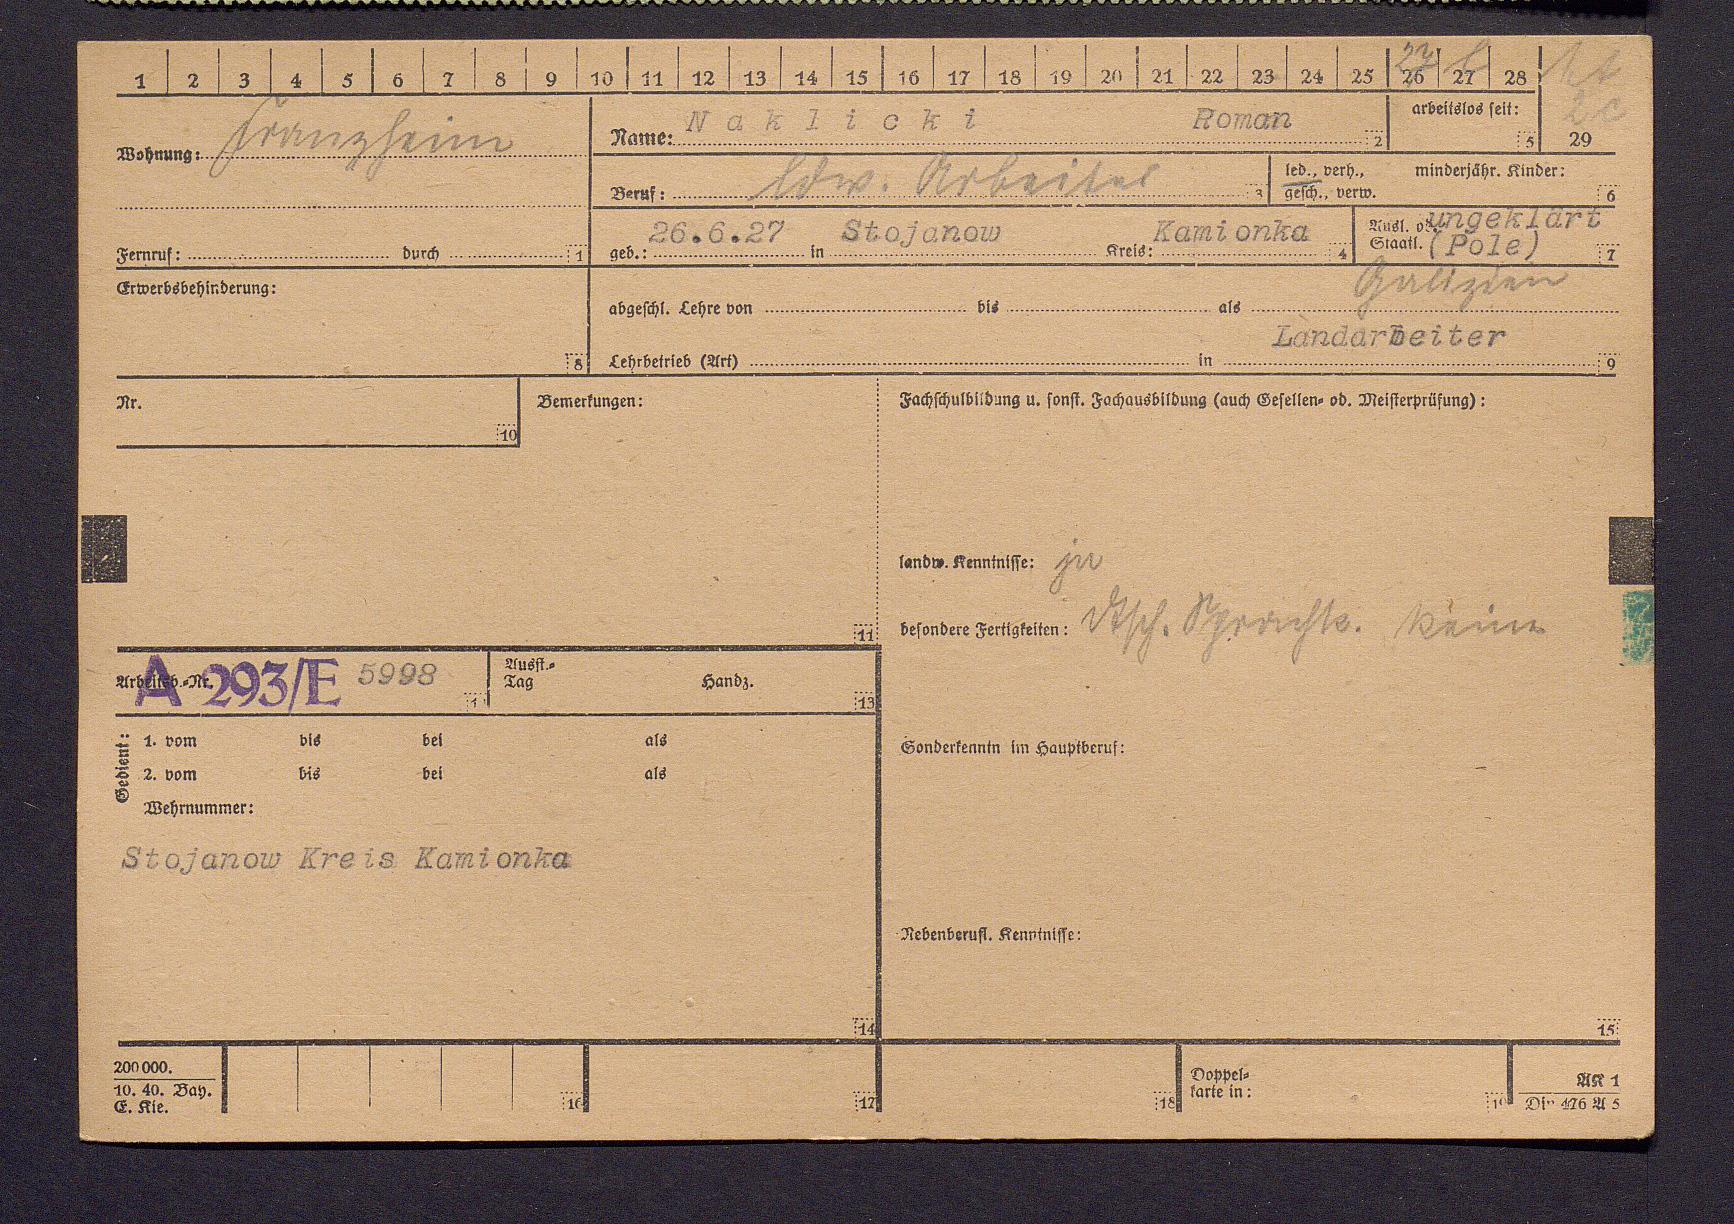 1 2 3 4 5 6 7 8 9 10 11 12 13 14 15 16 17 18 19 20 21 22 23 24 25 26 27 28
27
2c
Wohnung: Franzheim
Name: Naklicki Roman 2
arbeitslos seit: 5
29
Beruf: ldw. Arbeiter 3
led., verh., gesch., verw.
minderjähr. Kinder: 6
Fernruf: durch 1
geb.: 26.6.27 in Stojanow Kreis: Kamionka 4
Ausl. od. Staatl. ungeklärt (Pole) 7
Galizien
Erwerbsbehinderung: 8
abgeschl. Lehre von bis als
Landarbeiter
Lehrbetrieb (Art) in 9
Nr. 10
Bemerkungen: 11
Fachschulbildung u. sonst. Fachausbildung (auch Gesellen- od. Meisterprüfung):
landw. Kenntnisse: ja
besondere Fertigkeiten: dtsch. Sprachk. keine
Arbeitsb.-Nr. A 293/E 5998
Ausst.-Tag Handz. 13
Gedient:
1. vom bis bei als
2. vom bis bei als
Wehrnummer:
Sonderkenntn im Hauptberuf:
Stojanow Kreis Kamionka
14
Nebenberufl. Kenntnisse:
15
200000.
10. 40. Bay.
E. Kie.
16 17 18
Doppel-
karte in: 19
AK 1
Din 476 A 5